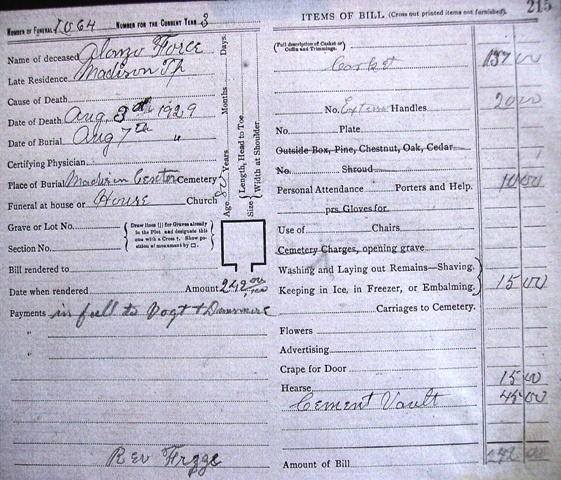 215
NUMBER OF FUNERAL 1064 NUMBER FOR THE CURRENT YEAR 3
Name of deceased Alonzo Force
Late Residence Madison Tp
Cause of Death
Date of Death Aug. 3rd 1929
Date of Burial Aug 7th "
Certifying Physician
Place of Burial Madison Center Cemetery
Funeral at house or House Church
Grave or Lot No.
Section No.
{ Draw lines ( ) for Graves already in the Plot and designate this one with a Cross †. Show position of monument by □. }
Age Years Months Days.
Size { Length, Head to Toe
Width at Shoulder
Bill rendered to
Date when rendered Amount 242.00
Payments in full to Vogt +
"
"
Rev
ITEMS OF BILL (Cross out printed items not furnished).
(Full description of Casket or Coffin and Trimmings.
Casket 137 00
No. Extension Handles 20 00
No. Plate
Outside Box, Pine, Chestnut, Oak, Cedar
No. Shroud
Personal Attendance Porters and Help. 10 00
prs. Gloves for
Use of Chairs
Cemetery Charges, opening grave
Washing and Laying out Remains—Shaving. }
Keeping in Ice, in Freezer, or Embalming. } 15 00
Carriages to Cemetery.
Flowers
Advertising
Crape for Door
Hearse 15 00
Cement Vault 45 00
Amount of Bill 242 00